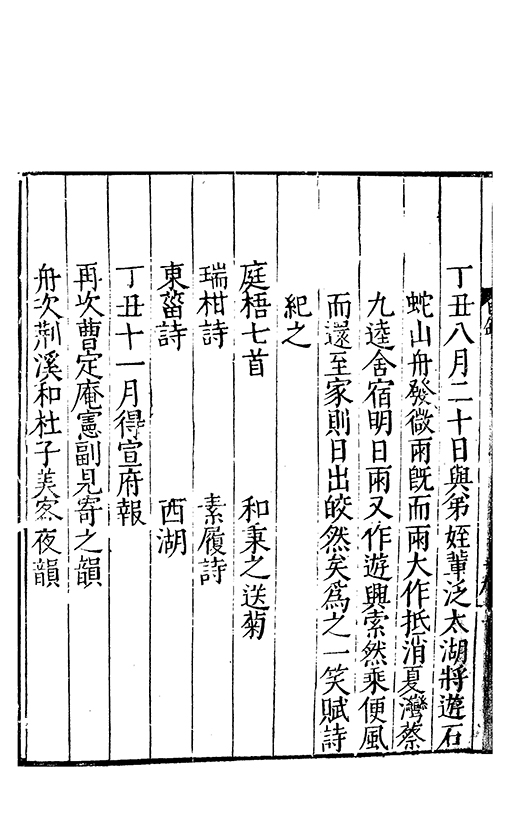 丁丑八月二十日與弟姪輩泛太湖將遊石
蛇山舟發微雨旣而雨大作抵消夏灣蔡
九逵舍宿明日雨又作遊興索然乘便風
而還至家則日出皎然矣爲之一笑賦詩
紀之
庭梧七首　和秉之送菊
瑞柑詩　素履詩
東菑詩　西湖
丁丑十一月得宣府報
再次曹定庵憲副見寄之韻
舟次荆溪和杜子美客夜韻